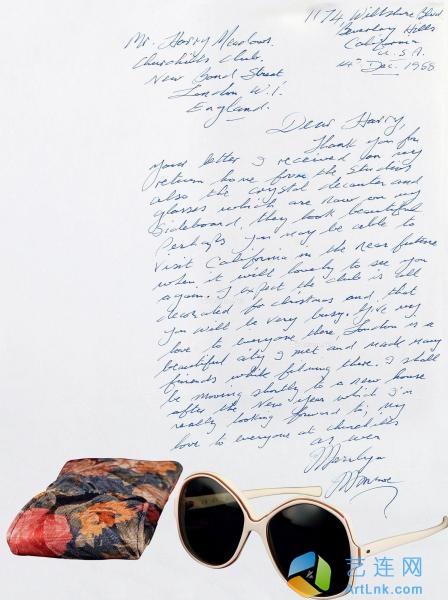 1174, Wiltshire Blvd
Beverley Hills
California
U.S.A.
14th Dec. 1958
Mr. Harry Meadows.
Churchills Club.
New Bond Street
London W.1.
England.
Dear Harry,
Thank you for
your letter I received on my
return home from the studios
also the crystal decanter and
glasses which are now on my
sideboard, they look beautiful
Perhaps you may be able to
visit California in the near future
when it will lovely to see you
again. I expect the club is all
decorated for christmas and that
you will be very busy. Give my
love to everyone there, London is a
beautiful city I met and made many
friends while filming there. I shall
be moving shortly to a new house
after the New Year which I'm
really looking forward to, my
love to everyone at churchills
as ever
Marilyn
Monroe
艺连网
ArtLnk.com